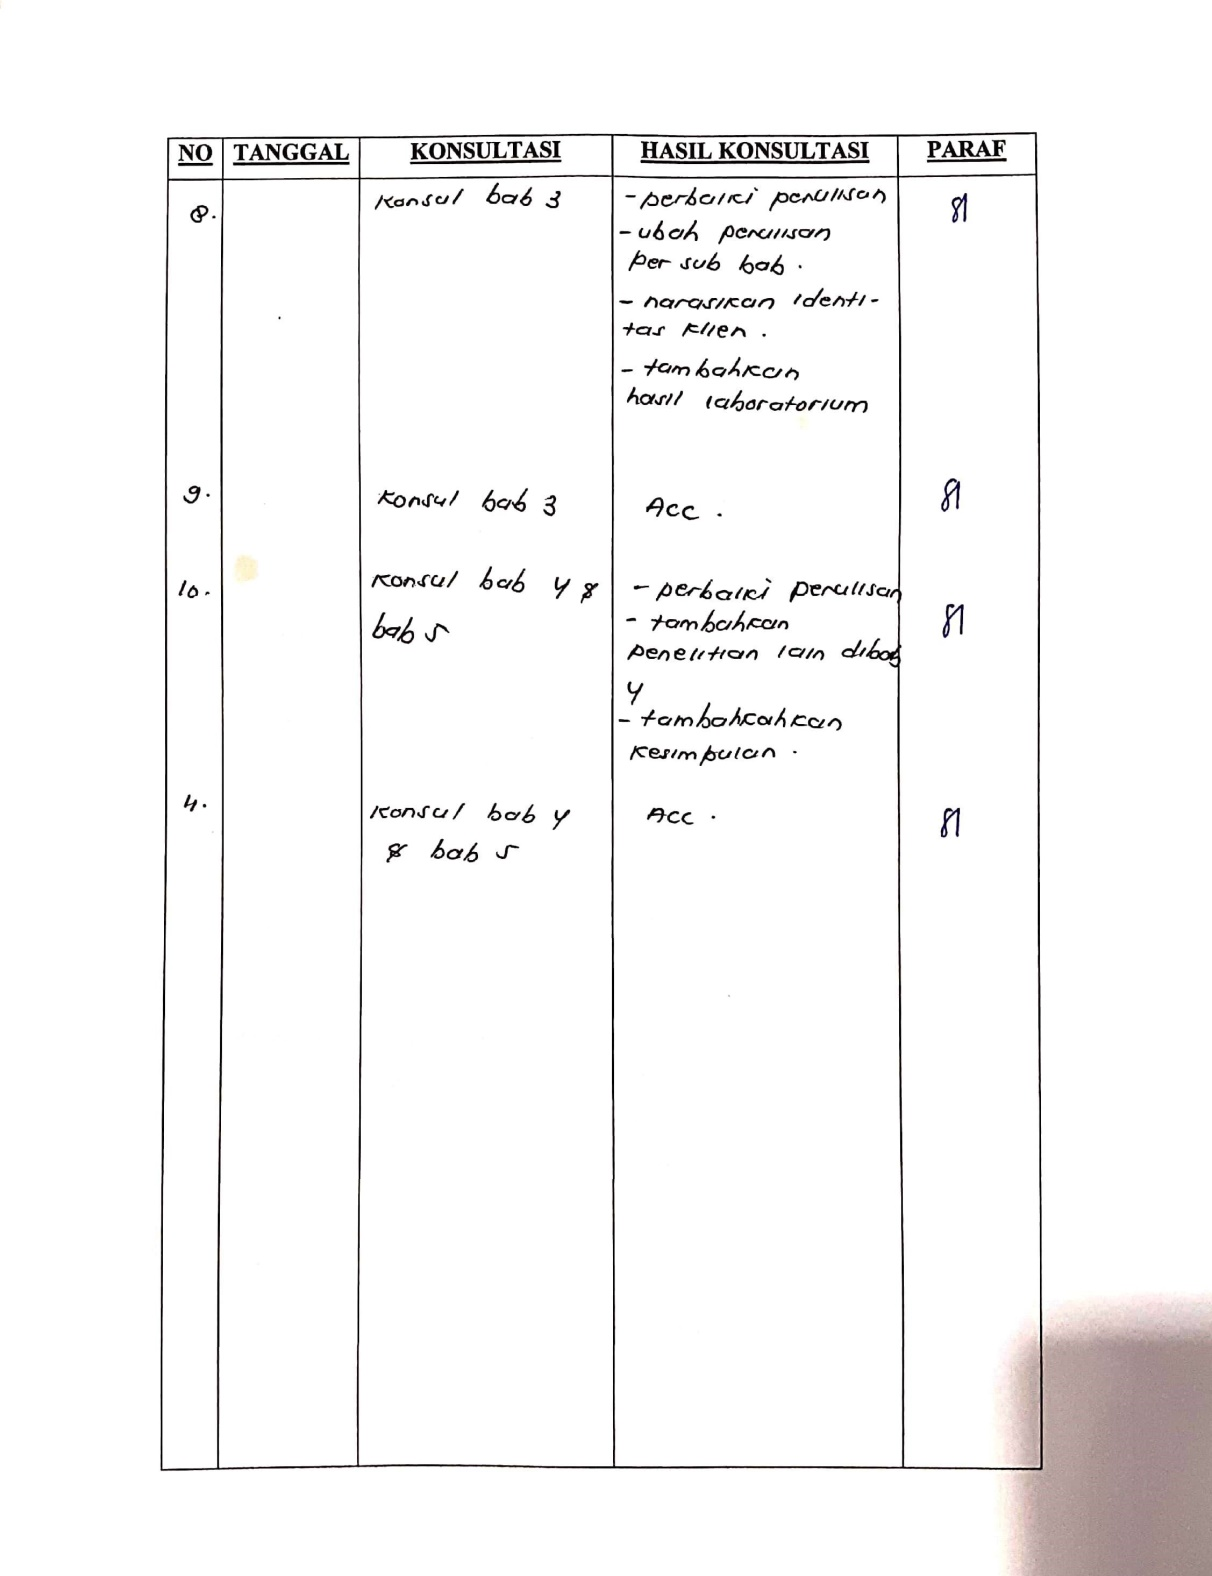 NO TANGGAL KONSULTASI HASIL KONSULTASI PARAF
8. Konsul bab 3 - perbaiki penulisan
- ubah penulisan
per sub bab .
- narasikan identi-
tas klien .
- tambahkan
hasil laboratorium
9. Konsul bab 3 Acc .
10. Konsul bab 4 & - perbaiki penulisan
bab 5 - tambahkan
penelitian lain dibab
4
- tambahkahkan
kesimpulan .
4. Konsul bab 4 Acc .
& bab 5